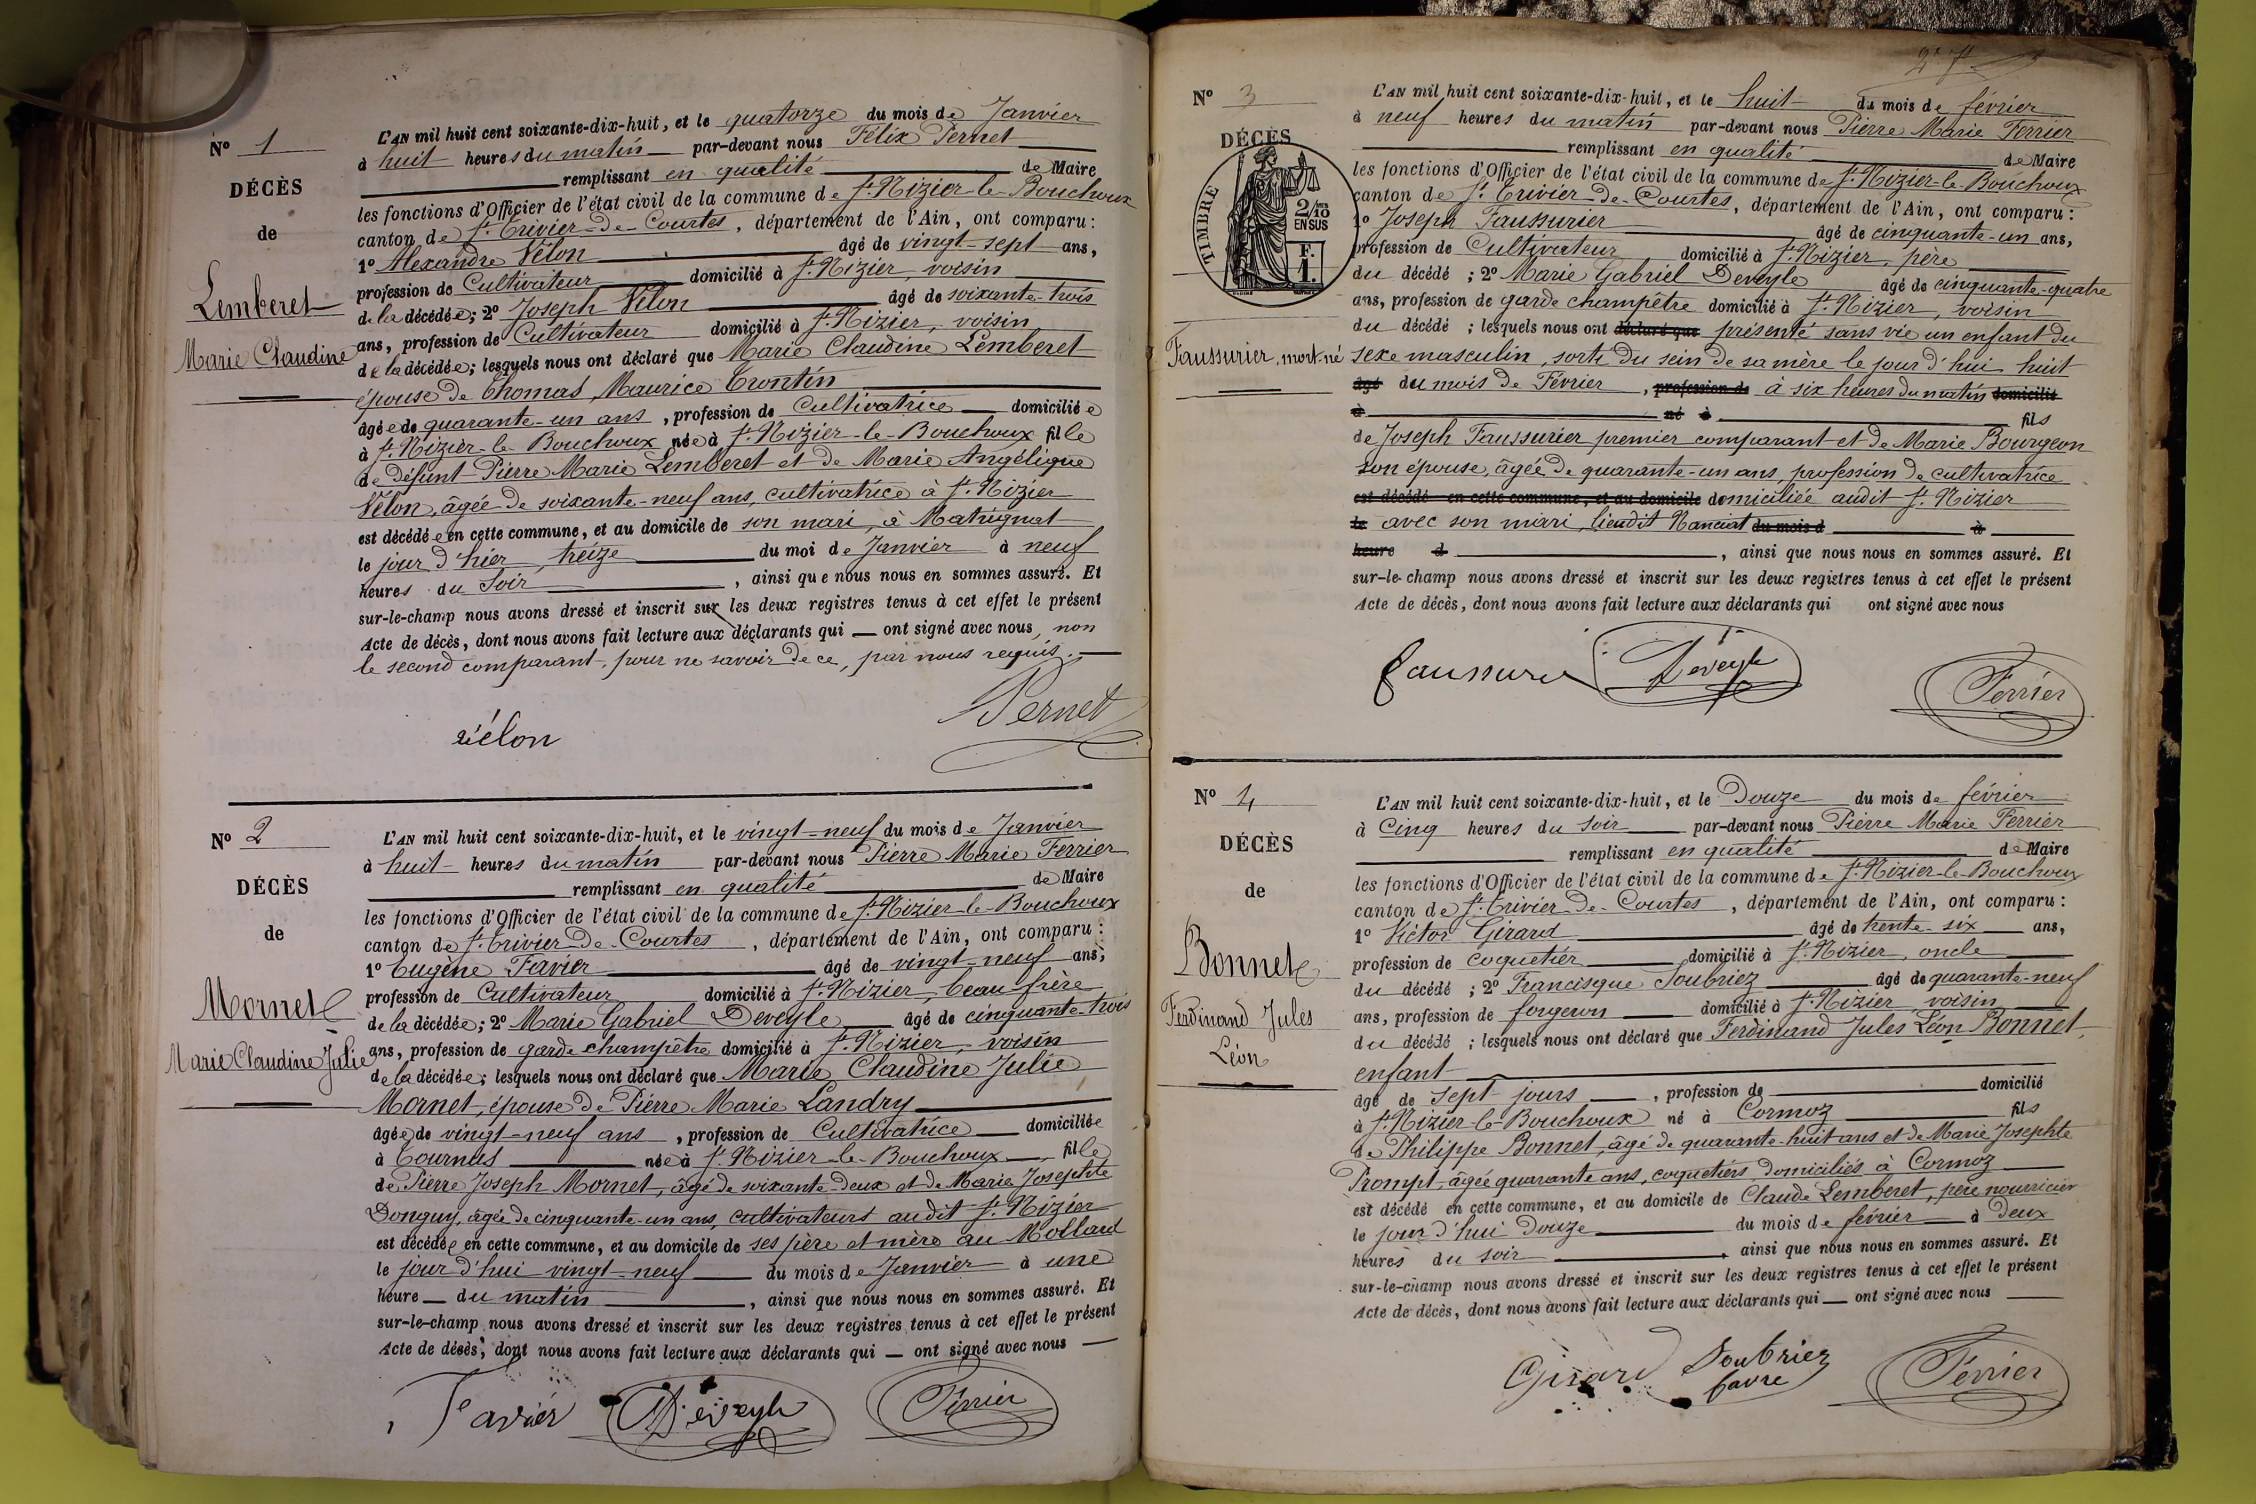 Nº 1
DÉCÈS
de
Lemberet
Marie Claudine
L'AN mil huit cent soixante-dix-huit, et le quatorze du mois de Janvier
à huit heures du matin par-devant nous Félix Pernet
remplissant en qualité de Maire
les fonctions d'Officier de l'état civil de la commune de St. Nizier-le-Bouchoux
canton de St. Trivier-de-Courtes, département de l'Ain, ont comparu :
1º Alexandre Vélon âgé de vingt-sept ans,
profession de Cultivateur domicilié à St. Nizier, voisin
de la décédée; 2º Joseph Vélon âgé de soixante-trois
ans, profession de Cultivateur domicilié à St. Nizier, voisin
de la décédée; lesquels nous ont déclaré que Marie Claudine Lemberet
épouse de Thomas Maurice Trontin
âgée de quarante-un ans, profession de Cultivatrice domiciliée
à St. Nizier-le-Bouchoux née à St. Nizier-le-Bouchoux fille
de défunt Pierre Marie Lemberet et de Marie Angélique
Vélon, âgée de soixante-neuf ans, cultivatrice à St. Nizier
est décédée en cette commune, et au domicile de son mari, à Matrignat
le jour d'hier, treize du moi de Janvier à neuf
heures du soir, ainsi que nous nous en sommes assuré. Et
sur-le-champ nous avons dressé et inscrit sur les deux registres tenus à cet effet le présent
Acte de décès, dont nous avons fait lecture aux déclarants qui — ont signé avec nous, non
le second comparant, pour ne savoir de ce, par nous requis.
Vélon
Pernet
Nº 2
DÉCÈS
de
Mornet
Marie Claudine Julie
L'AN mil huit cent soixante-dix-huit, et le vingt-neuf du mois de Janvier
à huit heures du matin par-devant nous Pierre Marie Ferrier
remplissant en qualité de Maire
les fonctions d'Officier de l'état civil de la commune de St. Nizier-le-Bouchoux
canton de St. Trivier-de-Courtes, département de l'Ain, ont comparu :
1º Eugène Favier âgé de vingt-neuf ans,
profession de Cultivateur domicilié à St. Nizier, beau-frère
de la décédée; 2º Marie Gabriel Deveyle âgé de cinquante-trois
ans, profession de garde champêtre domicilié à St. Nizier, voisin
de la décédée; lesquels nous ont déclaré que Marie Claudine Julie
Mornet, épouse de Pierre Marie Landry
âgée de vingt-neuf ans, profession de Cultivatrice domiciliée
à Tournus née à St. Nizier-le-Bouchoux, fille
de Pierre Joseph Mornet, âgé de soixante-deux et de Marie Josephte
Donguy, âgée de cinquante-un ans, cultivateurs audit St. Nizier
est décédée en cette commune, et au domicile de ses père et mère au Mollard
le jour d'hui vingt-neuf du mois de Janvier à une
heure — du matin, ainsi que nous nous en sommes assuré. Et
sur-le-champ nous avons dressé et inscrit sur les deux registres tenus à cet effet le présent
Acte de décès, dont nous avons fait lecture aux déclarants qui — ont signé avec nous —
Favier Deveyle Ferrier
2e f
Nº 3
DÉCÈS
TIMBRE
2/10
EN SUS
F.
1.
Faussurier, mort-né
L'AN mil huit cent soixante-dix-huit, et le huit du mois de février
à neuf heures du matin par-devant nous Pierre Marie Ferrier
remplissant en qualité de Maire
les fonctions d'Officier de l'état civil de la commune de St. Nizier-le-Bouchoux
canton de St. Trivier-de-Courtes, département de l'Ain, ont comparu :
1º Joseph Faussurier âgé de cinquante-un ans,
profession de Cultivateur domicilié à St. Nizier, père
du décédé ; 2º Marie Gabriel Deveyle âgé de cinquante-quatre
ans, profession de garde champêtre domicilié à St. Nizier, voisin
du décédé ; lesquels nous ont déclaré que présenté sans vie un enfant du
sexe masculin, sorti du sein de sa mère le jour d'hui huit
âgé du mois de Février, profession de à six heures du matin domicilié
à né à fils
de Joseph Faussurier premier comparant et de Marie Bourgeon
son épouse, âgée de quarante-un ans, profession de cultivatrice
est décédé en cette commune, et au domicile domiciliée audit St. Nizier
le avec son mari, lieudit Nanciat du mois d à
heure d, ainsi que nous nous en sommes assuré. Et
sur-le-champ nous avons dressé et inscrit sur les deux registres tenus à cet effet le présent
Acte de décès, dont nous avons fait lecture aux déclarants qui ont signé avec nous
Faussurier Deveyle Ferrier
Nº 4
DÉCÈS
de
Bonnet
Ferdinand Jules
Léon
L'AN mil huit cent soixante-dix-huit, et le Douze du mois de février
à Cinq heures du soir par-devant nous Pierre Marie Ferrier
remplissant en qualité de Maire
les fonctions d'Officier de l'état civil de la commune de St. Nizier-le-Bouchoux
canton de St. Trivier-de-Courtes, département de l'Ain, ont comparu :
1º Victor Girard âgé de trente-six ans,
profession de coquetier domicilié à St. Nizier, oncle
du décédé ; 2º Francisque Soubriez âgé de quarante-neuf
ans, profession de forgeron domicilié à St. Nizier, voisin
du décédé ; lesquels nous ont déclaré que Ferdinand Jules Léon Bonnet,
enfant
âgé de sept jours, profession de domicilié
à St. Nizier-le-Bouchoux né à Cormoz fils
de Philippe Bonnet, âgé de quarante-huit ans et de Marie Josephte
Prompt, âgée quarante ans, coquetiers, domiciliés à Cormoz
est décédé en cette commune, et au domicile de Claude Lemberet, père nourricier
le jour d'hui Douze du mois de février à deux
heures du soir, ainsi que nous nous en sommes assuré. Et
sur-le-champ nous avons dressé et inscrit sur les deux registres tenus à cet effet le présent
Acte de décès, dont nous avons fait lecture aux déclarants qui — ont signé avec nous
Girard Soubriez Ferrier
favre